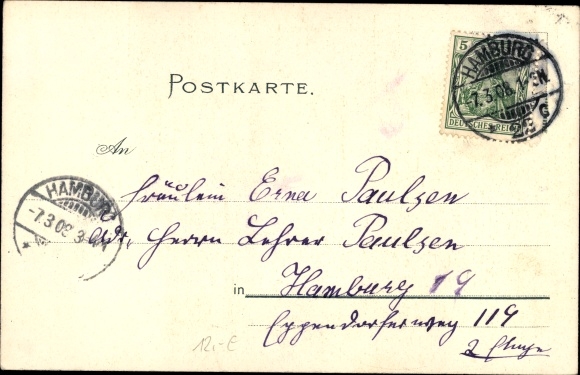 POSTKARTE.
5
DEUTSCHES REICH
HAMBURG
-7.3.08. 1-2N.
An
Fräulein Erna Paulsen
HAMBURG
-7.3.08 3-4N
Adr. Herrn Lehrer Paulsen
in Hamburg 19
Eppendorferweg 119
2 Etage
12,- €